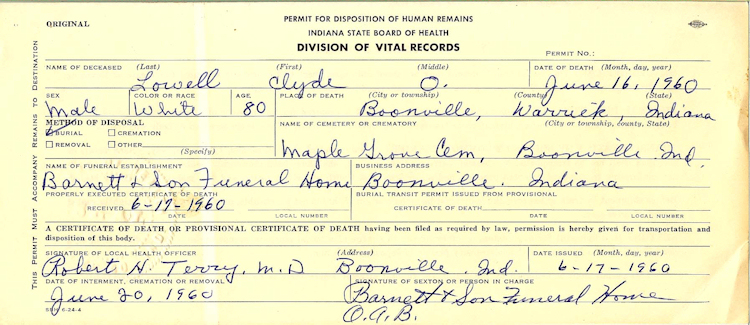 ORIGINAL
PERMIT FOR DISPOSITION OF HUMAN REMAINS
INDIANA STATE BOARD OF HEALTH
DIVISION OF VITAL RECORDS
PERMIT NO.:
THIS PERMIT MUST ACCOMPANY REMAINS TO DESTINATION
NAME OF DECEASED (Last) (First) (Middle) DATE OF DEATH (Month, day, year)
Lowell Clyde O. June 16, 1960
SEX COLOR OR RACE AGE PLACE OF DEATH (City or township) (County) (State)
Male White 80 Boonville, Warrick, Indiana
METHOD OF DISPOSAL NAME OF CEMETERY OR CREMATORY (City or township, county, State)
BURIAL CREMATION
REMOVAL OTHER (Specify) Maple Grove Cem, Boonville. Ind.
NAME OF FUNERAL ESTABLISHMENT BUSINESS ADDRESS
Barnett & Son Funeral Home Boonville. Indiana
PROPERLY EXECUTED CERTIFICATE OF DEATH BURIAL TRANSIT PERMIT ISSUED FROM PROVISIONAL
RECEIVED 6-17-1960 CERTIFICATE OF DEATH
DATE LOCAL NUMBER DATE LOCAL NUMBER
A CERTIFICATE OF DEATH OR PROVISIONAL CERTIFICATE OF DEATH having been filed as required by law, permission is hereby given for transportation and
disposition of this body.
SIGNATURE OF LOCAL HEALTH OFFICER (Address) DATE ISSUED (Month, day, year)
Robert H. Terry, M.D Boonville, Ind. 6-17-1960
DATE OF INTERMENT, CREMATION OR REMOVAL SIGNATURE OF SEXTON OR PERSON IN CHARGE
June 20, 1960 Barnett & Son Funeral Home
O.A.B.